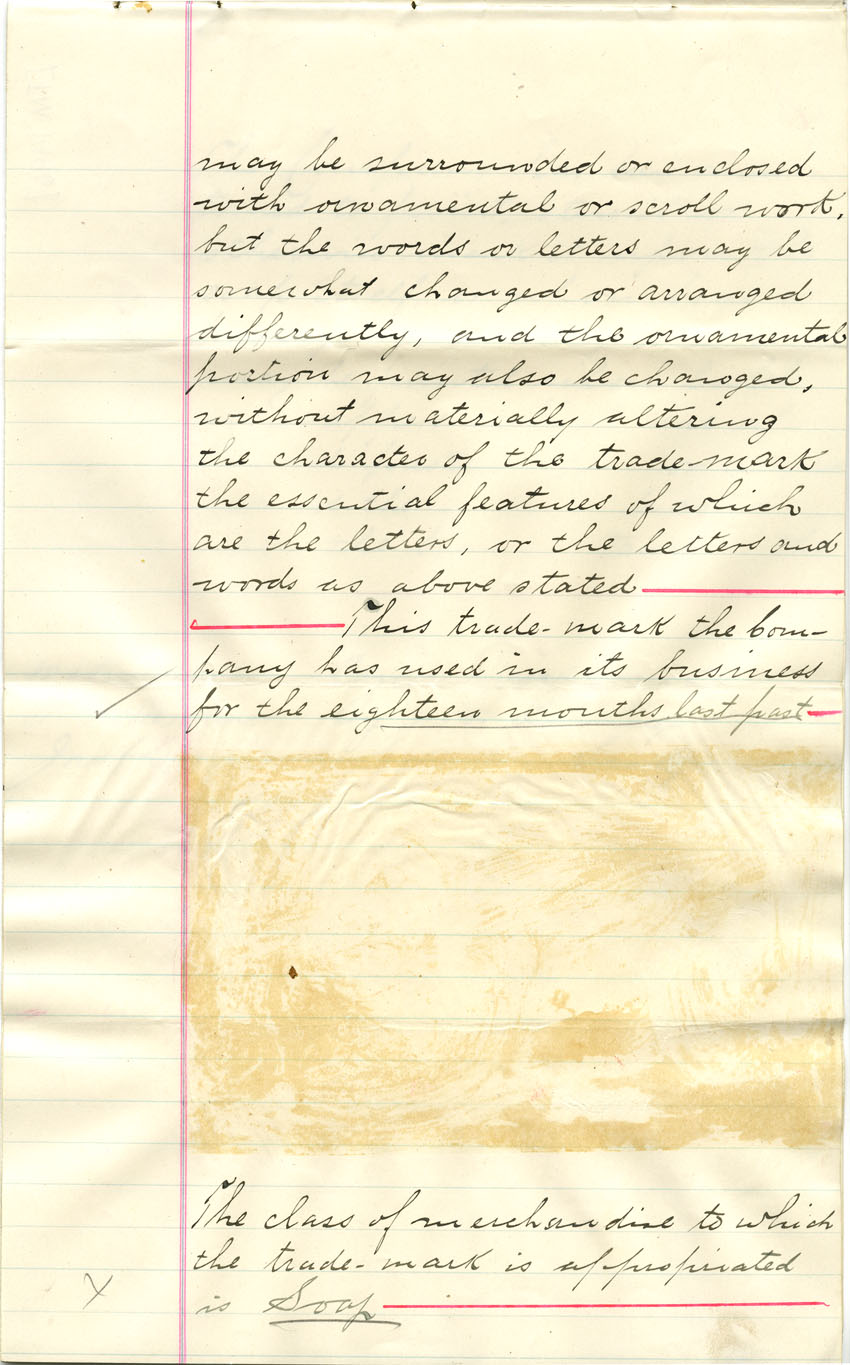 may be surrounded or enclosed
with ornamental or scroll work,
but the words or letters may be
somewhat changed or arranged
differently, and the ornamental
portion may also be changed,
without materially altering
the character of the trade-mark
the essential features of which
are the letters, or the letters and
words as above stated
This trade-mark the Com-
pany has used in its business
for the eighteen months last past
The class of merchandise to which
the trade-mark is appropriated
is Soap